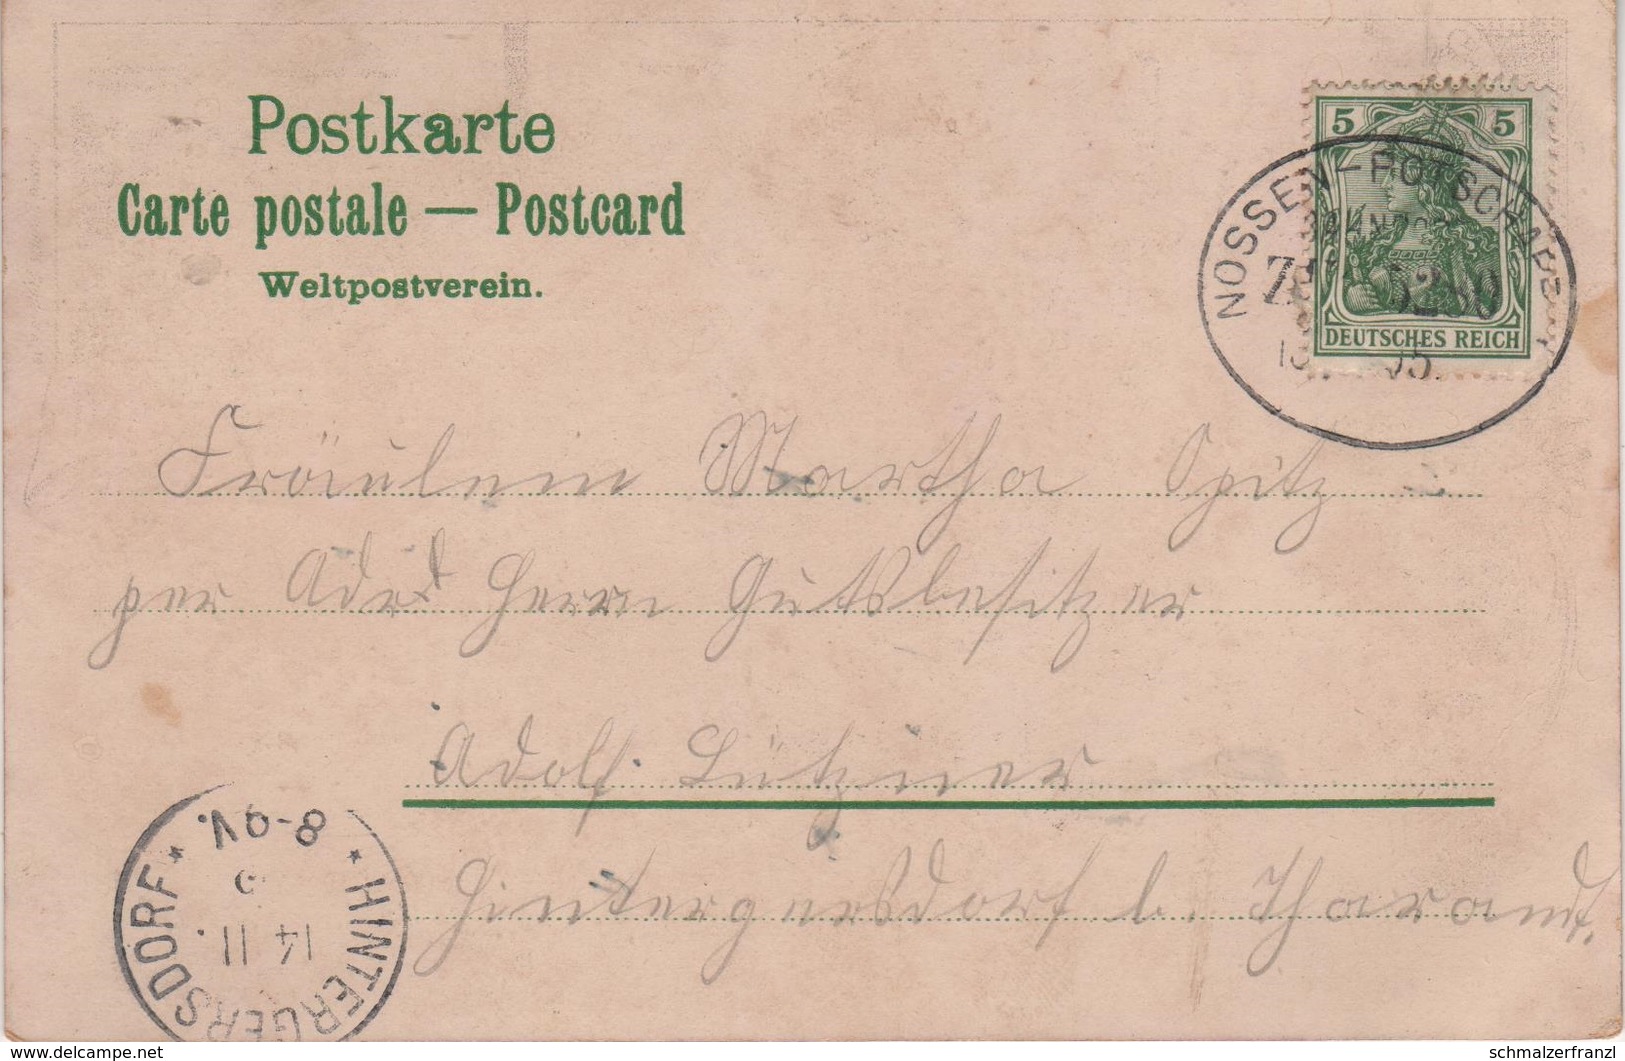 Postkarte
Carte postale — Postcard
Weltpostverein.
5 5
DEUTSCHES REICH
NOSSEN-POTSCHAPPEL
BAHNPOST
5250
Fräulein Martha Spitz
per Adr Herrn Gutsbesitzer
Adolf Lützner
Hintergersdorf b. Tharandt.
* HINTERGERSDORF *
14 11.
8-9V.
www.delcampe.net
schmalzerfranzl